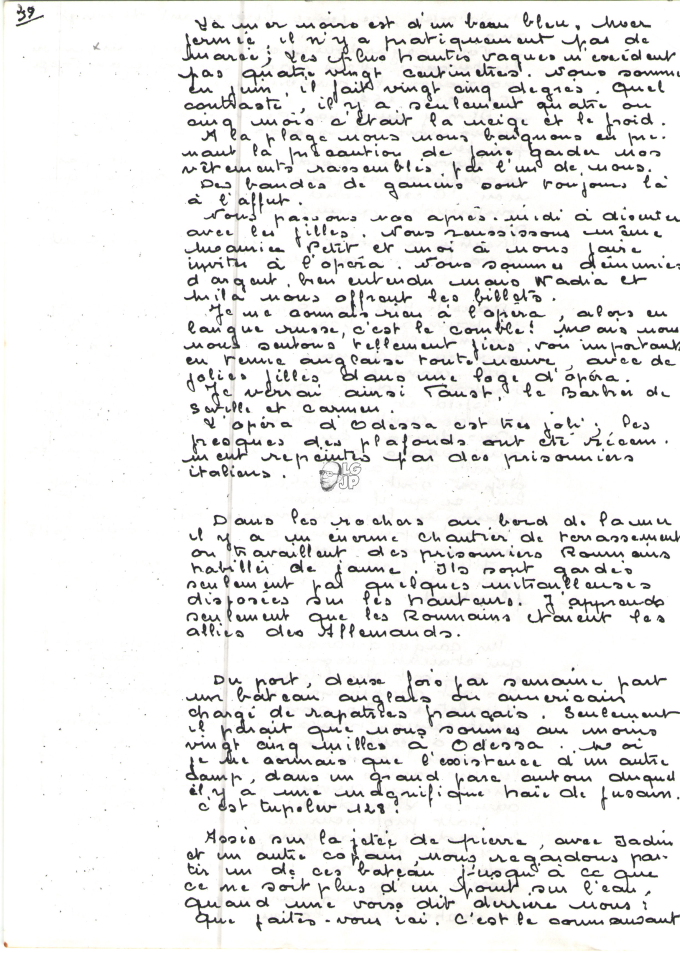 39
La mer noire est d'un beau bleu. Mer
fermée, il n'y a pratiquement pas de
marée; Les plus hautes vagues n'excèdent
pas quatre vingt centimètres. Nous somme
en juin, il fait vingt cinq degrés. Quel
contraste, il y a seulement quatre ou
cinq mois c'était la neige et le froid.
A la plage nous nous baignons en pre-
nant la précaution de faire garder nos
vêtements rassemblés par l'un de nous.
Des bandes de gamins sont toujours là
à l'affut.
Nous passons nos après-midi à discuter
avec les filles. Nous réussissons même
Maurice Petit et moi à nous faire
inviter à l'opéra. Nous sommes démunies
d'argent, bien entendu mais Nadia et
Mila nous offrent les billets.
Je ne connais rien à l'opéra, alors en
langue russe, c'est le comble! Mais nous
nous sentons tellement fiers, voir important
en tenue anglaise toute neuve, avec de
jolies filles dans une loge d'opéra.
Je verrai ainsi Faust, le Barbier de
Seville et Carmen.
L'opéra d'Odessa est très joli; les
fresques des plafonds ont été récem-
ment repeintes par des prisonniers
italiens.
LG
JP
Dans les rochers au bord de la mer
il y a un énorme chantier de terrassement
ou travaillent des prisonniers Roumains
habillés de jaune. Ils sont gardés
seulement par quelques mitrailleuses
disposées sur les hauteurs. J'apprends
seulement que les Roumains étaient les
alliés des Allemands.
Du port, deux fois par semaine part
un bateau anglais ou americain
chargé de rapatriés français. Seulement
il parait que nous sommes au moins
vingt cinq milles à Odessa. Moi
je ne connais que l'existence d'un autre
camp, dans un grand parc autour duquel
il y a une magnifique haie de fusain.
C'est tupolev 128!
Assis sur la jetée de pierre, avec Jadin
et un autre copain, nous regardons par-
tir un de ces bateau jusqu'à ce que
ce ne soit plus d'un point sur l'eau,
quand une voix dit derrière nous:
que faites-vous ici. C'est le commandant